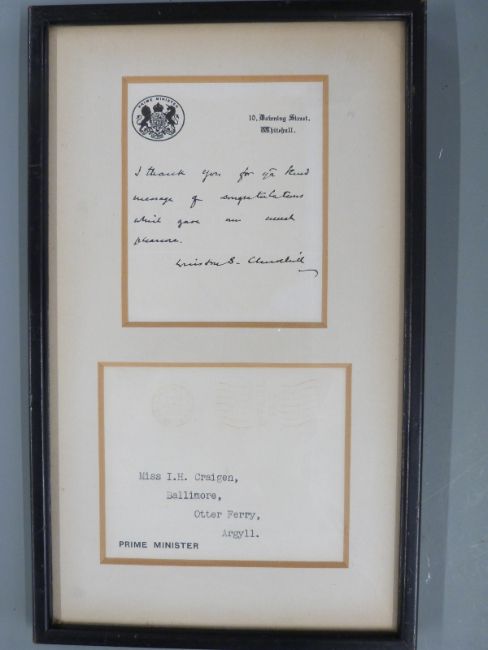 PRIME MINISTER
10, Downing Street,
Whitehall.
I thank you for yr kind
message of congratulations
which gave me much
pleasure.
Winston S. Churchill
Miss I.H. Craigen,
Ballimore,
Otter Ferry,
Argyll.
PRIME MINISTER